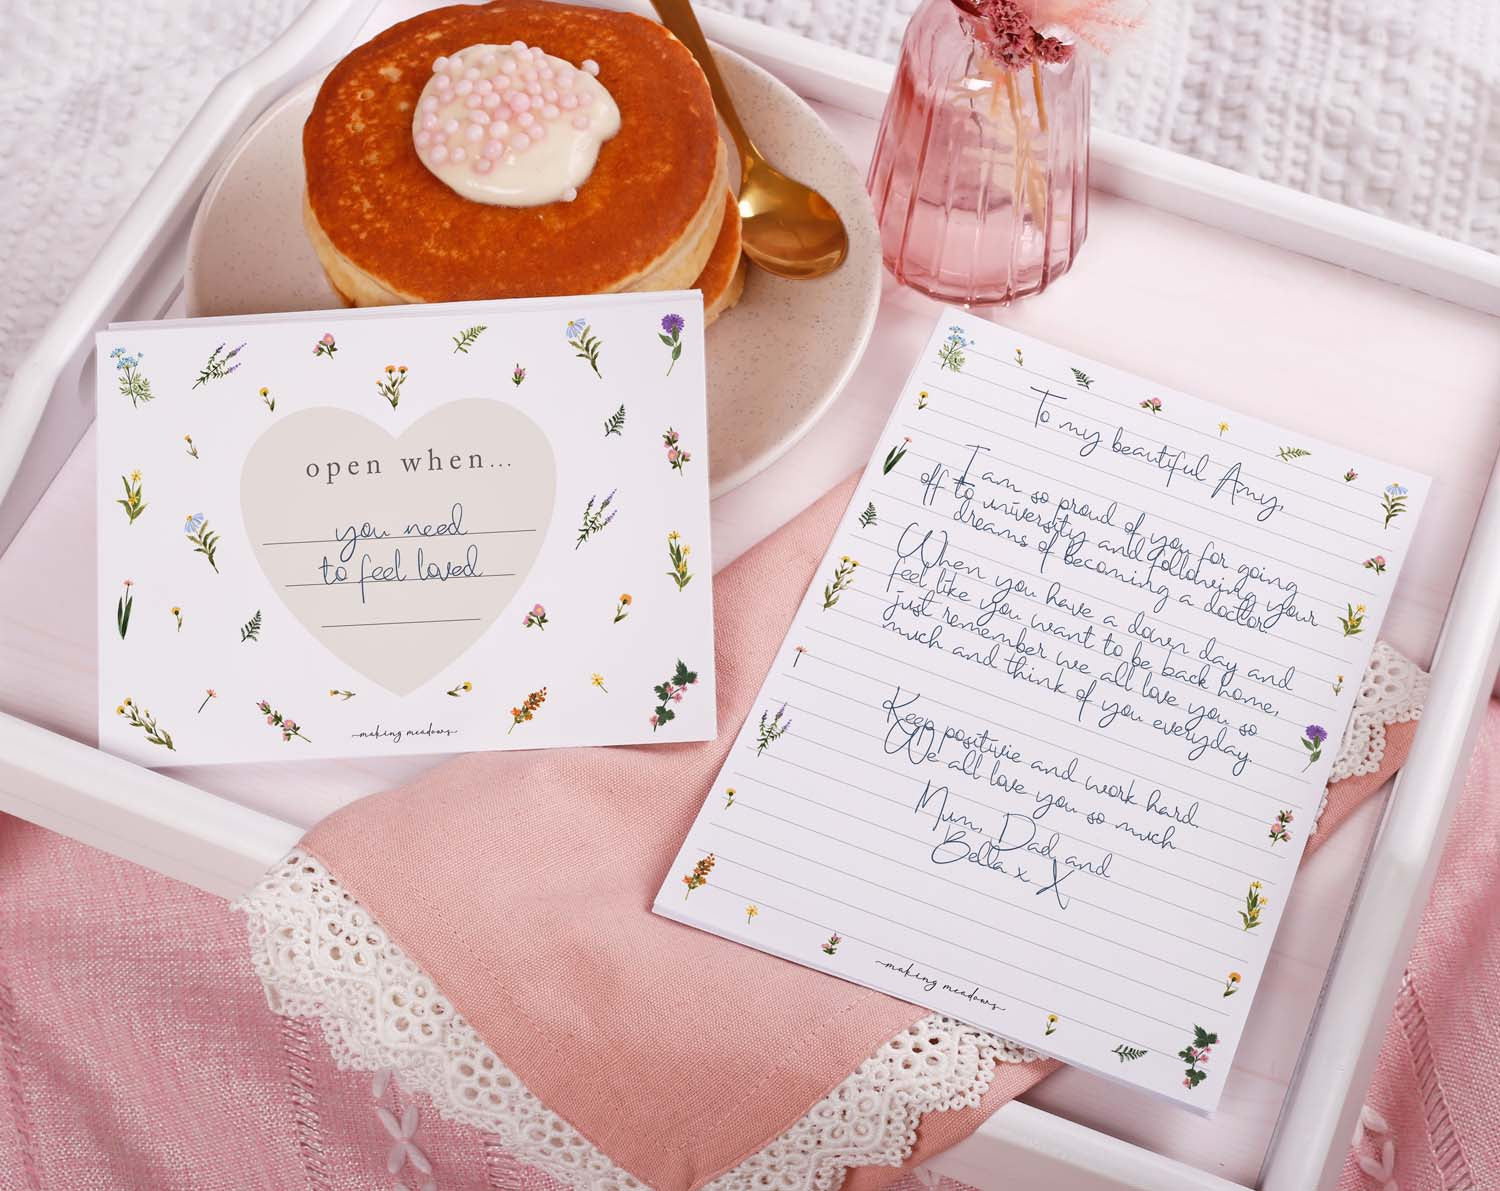 open when...
you need
to feel loved
making meadows
To my beautiful Amy,
I am so proud of you for going
off to university and following your
dreams of becoming a doctor.
When you have a down day and
feel like you want to be back home,
just remember we all love you so
much and think of you everyday.
Keep positivie and work hard.
We all love you so much
Mum, Dad, and
Bella x X
making meadows